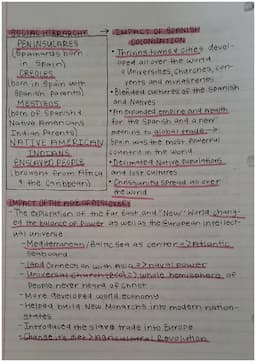 SOCIAL HIERARCHY
PENINSULARES
(Spaniards born
in Spain)
CREOLES
(born in Spain with
Spanish parents)
MESTIZOS
(born of Spanish &
Native Americans
Indian Parents)
NATIVE AMERICAN
INDIANS
ENSLAVED PEOPLE
(brought from Africa
& the Caribbean)
→ IMPACT OF SPANISH
COLONIZATION
• Thriving towns & cities devel-
oped all over the world
◦ Universities, churches, con-
vents and monasteries
• Blended cultures of the Spanish
and Natives
• An expanded empire and wealth
for the Spanish and a new
meaning to global trade →
Spain was the most powerful
country in the world
• Decimated Native populations
and lost cultures
• Christianity spread all over
the world
IMPACT OF THE AGE OF DISCOVERY
- The exploration of the Far East and "New" World chang-
ed the balance of Power as well as the European intellect-
ual universe
- Mediterranean/Baltic Sea as center => Atlantic
Seaboard
- Land connection with Asia => naval power
- Universal Church (Pope) => whole hemisphere of
people never heard of Christ
- More developed world economy
- Helped build New Monarchs into modern nation-
states
- Introduced the slave trade into Europe
- Change its diet > Agricultural Revolution